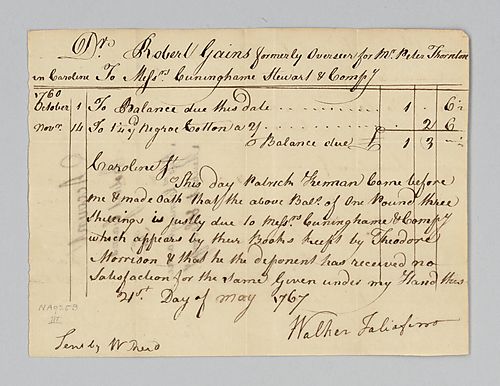 Dr. Robert Gains formerly Overseer for Mr. Peter Thornton
in Caroline To Messrs. Cuninghame Stewart & Compy
1760
October 1 To Balance due this date 1 . 6 ½
Novr. 14 To 1¼ yd Negroe Cotton a 2/ 2 6
Balance due £ 1 3
Caroline Ft.
This day Patrick Freman Came before
me & made Oath that the above Balle. of One Pound three
Shillings is justly due to Messrs. Cuninghame & Compy
which appears by their Books keept by Theodore
Morrison & that he the deponent has received no
Satisfaction for the Same Given under my Hand this
21st. Day of may 1767
Walker Taliaferro
NA0259
III
Sent by W